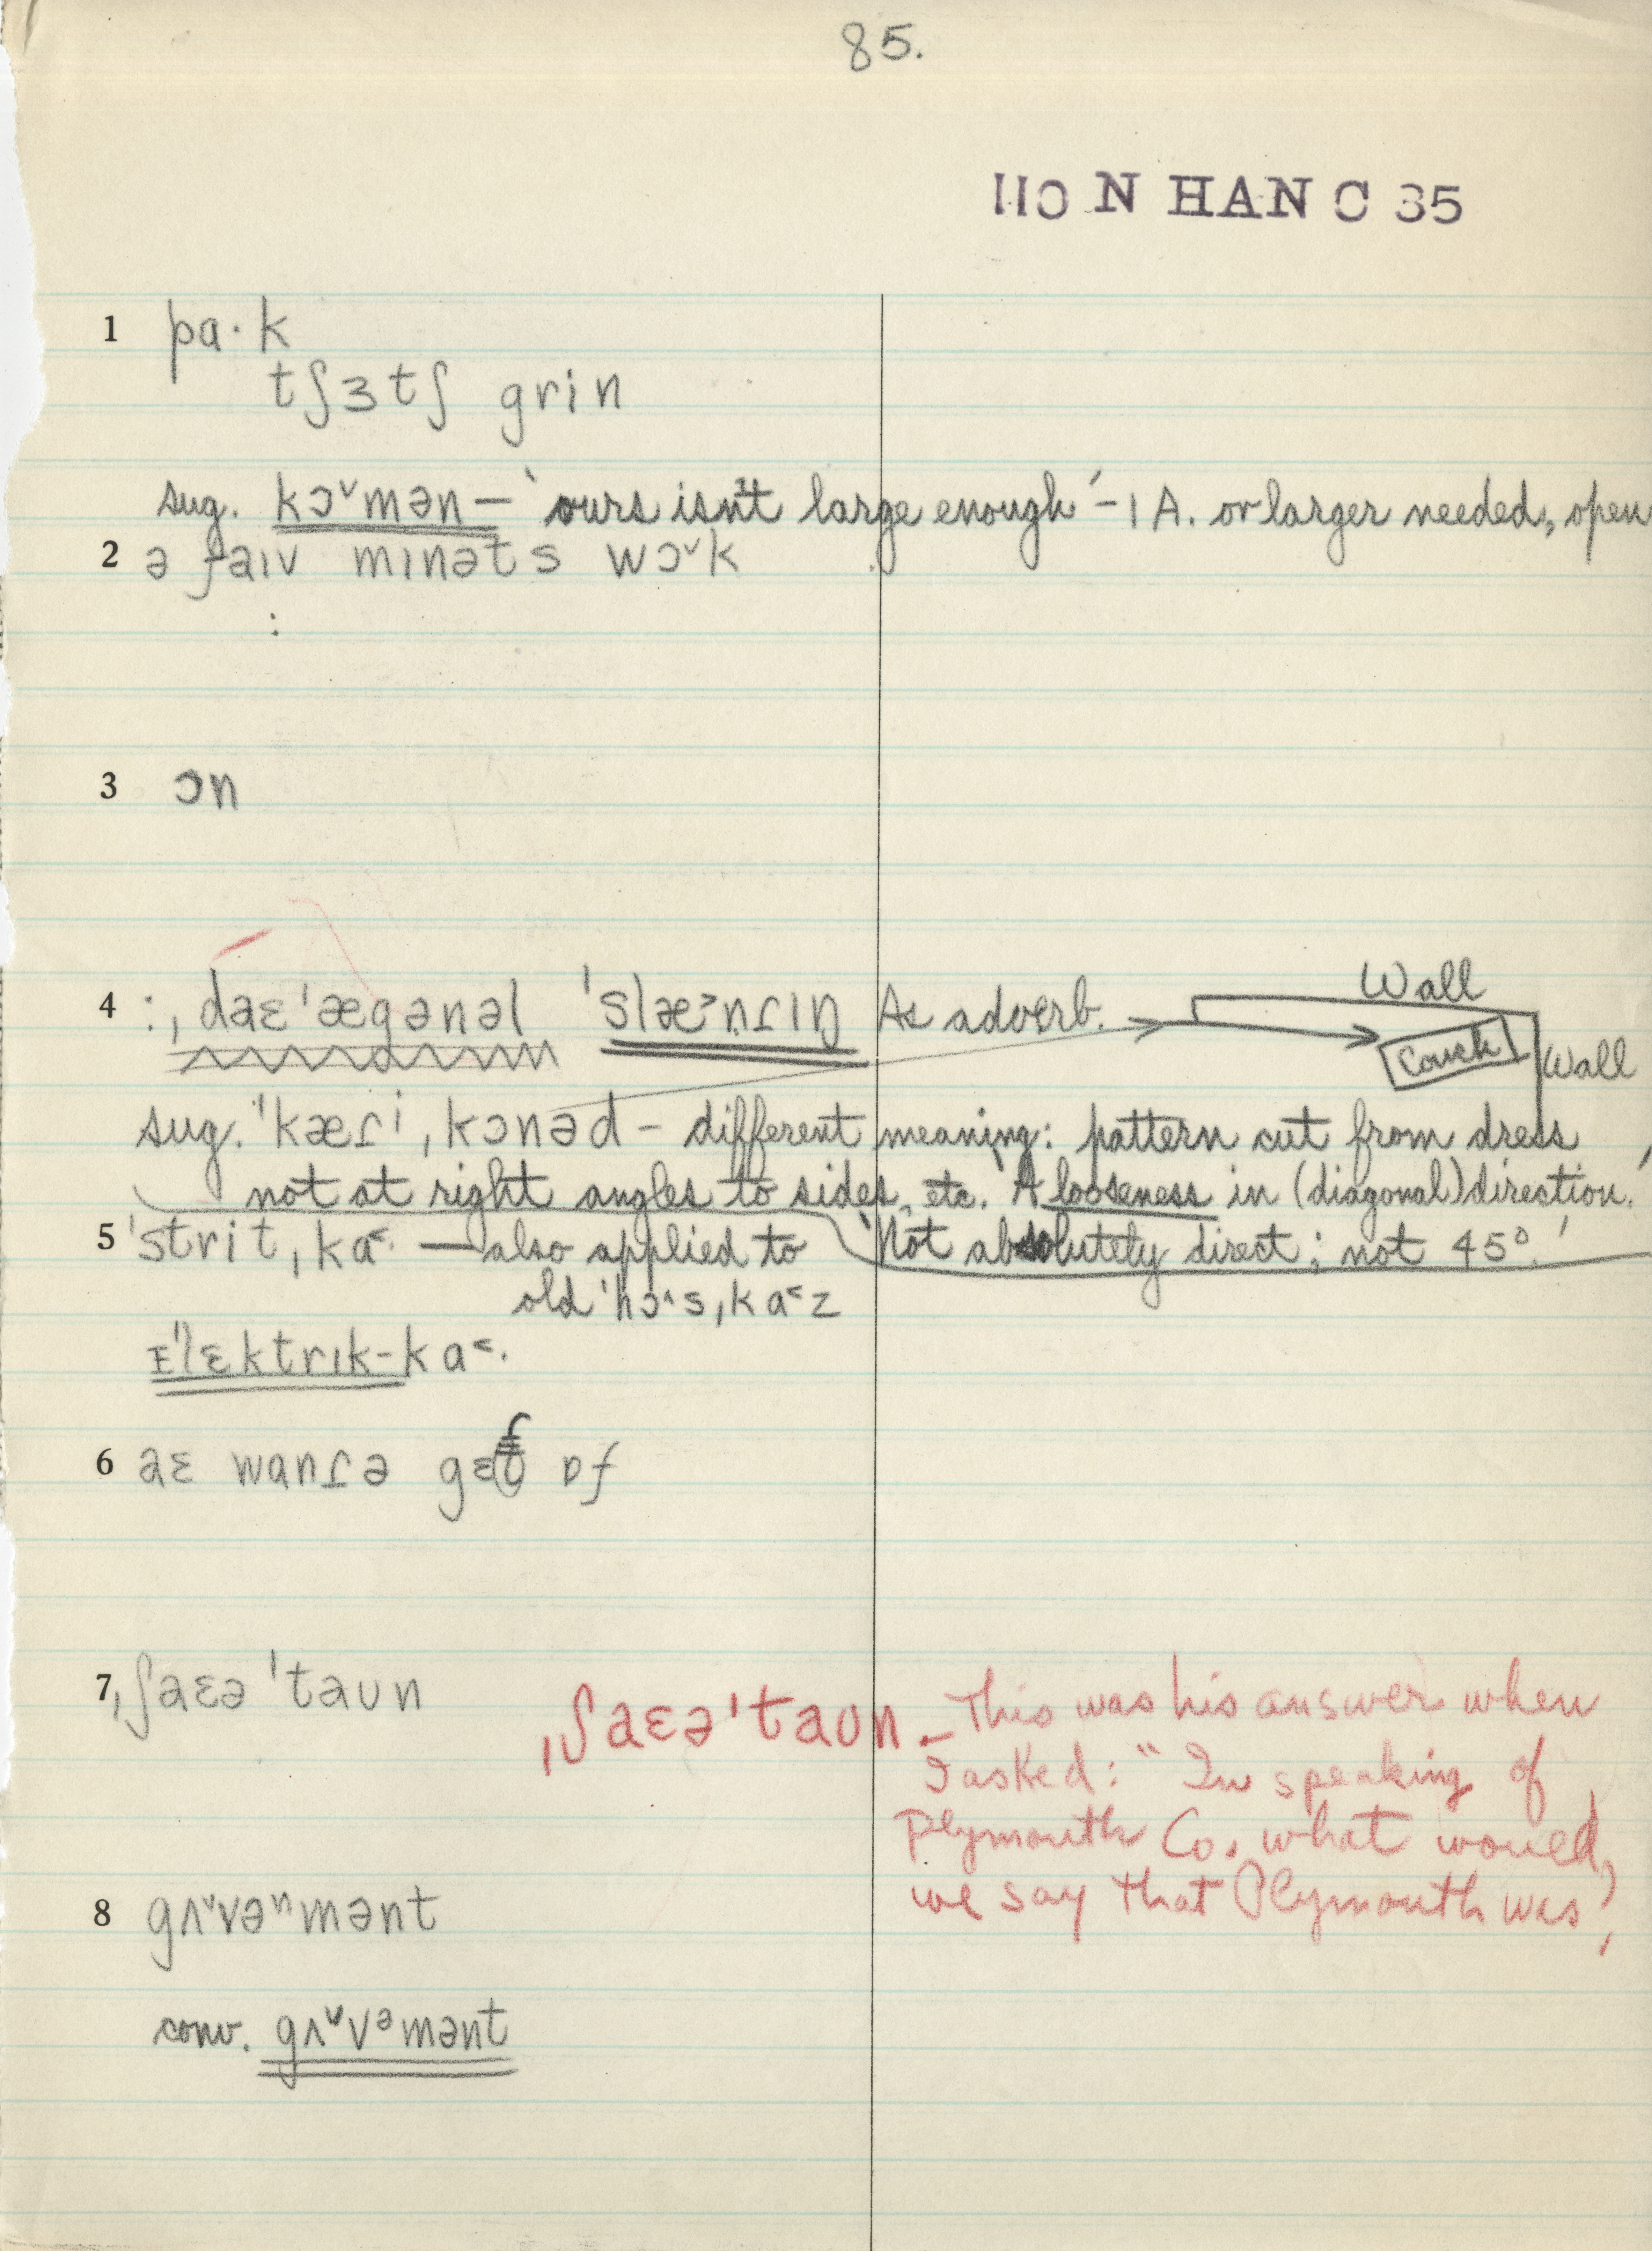 85.
110 N HAN C 35
1 pa·k
tʃɜtʃ grin
sug. kɔ˅mən — 'ours isn't large enough' – 1 A. or larger needed, open
2 ə faɪv mɪnəts wɔ˅k
:
3 ɔn
4 :, ˌdaɛˈægənəl ˈslæ˃nɾɪŋ As adverb.
Wall
Couch
Wall
sug. ˈkæɾi ˌkɔnəd – different meaning: pattern cut from dress
not at right angles to sides, etc. 'A looseness in (diagonal) direction.'
5 ˈstrit ˌka˂· — also applied to 'Not absolutely direct; not 45°.'
old ˈhɔ˄s ˌka˂z
ɪˈlɛktrɪk-ka˂·
6 aɛ wanɾə gɛt ɒf
7 ˌʃaɛəˈtaun
ˌʃaɛəˈtaun – This was his answer when
I asked: "In speaking of
Plymouth Co. what would
we say that Plymouth was?
8 gʌ˅vəⁿmənt
conv. gʌ˅vᵊmənt